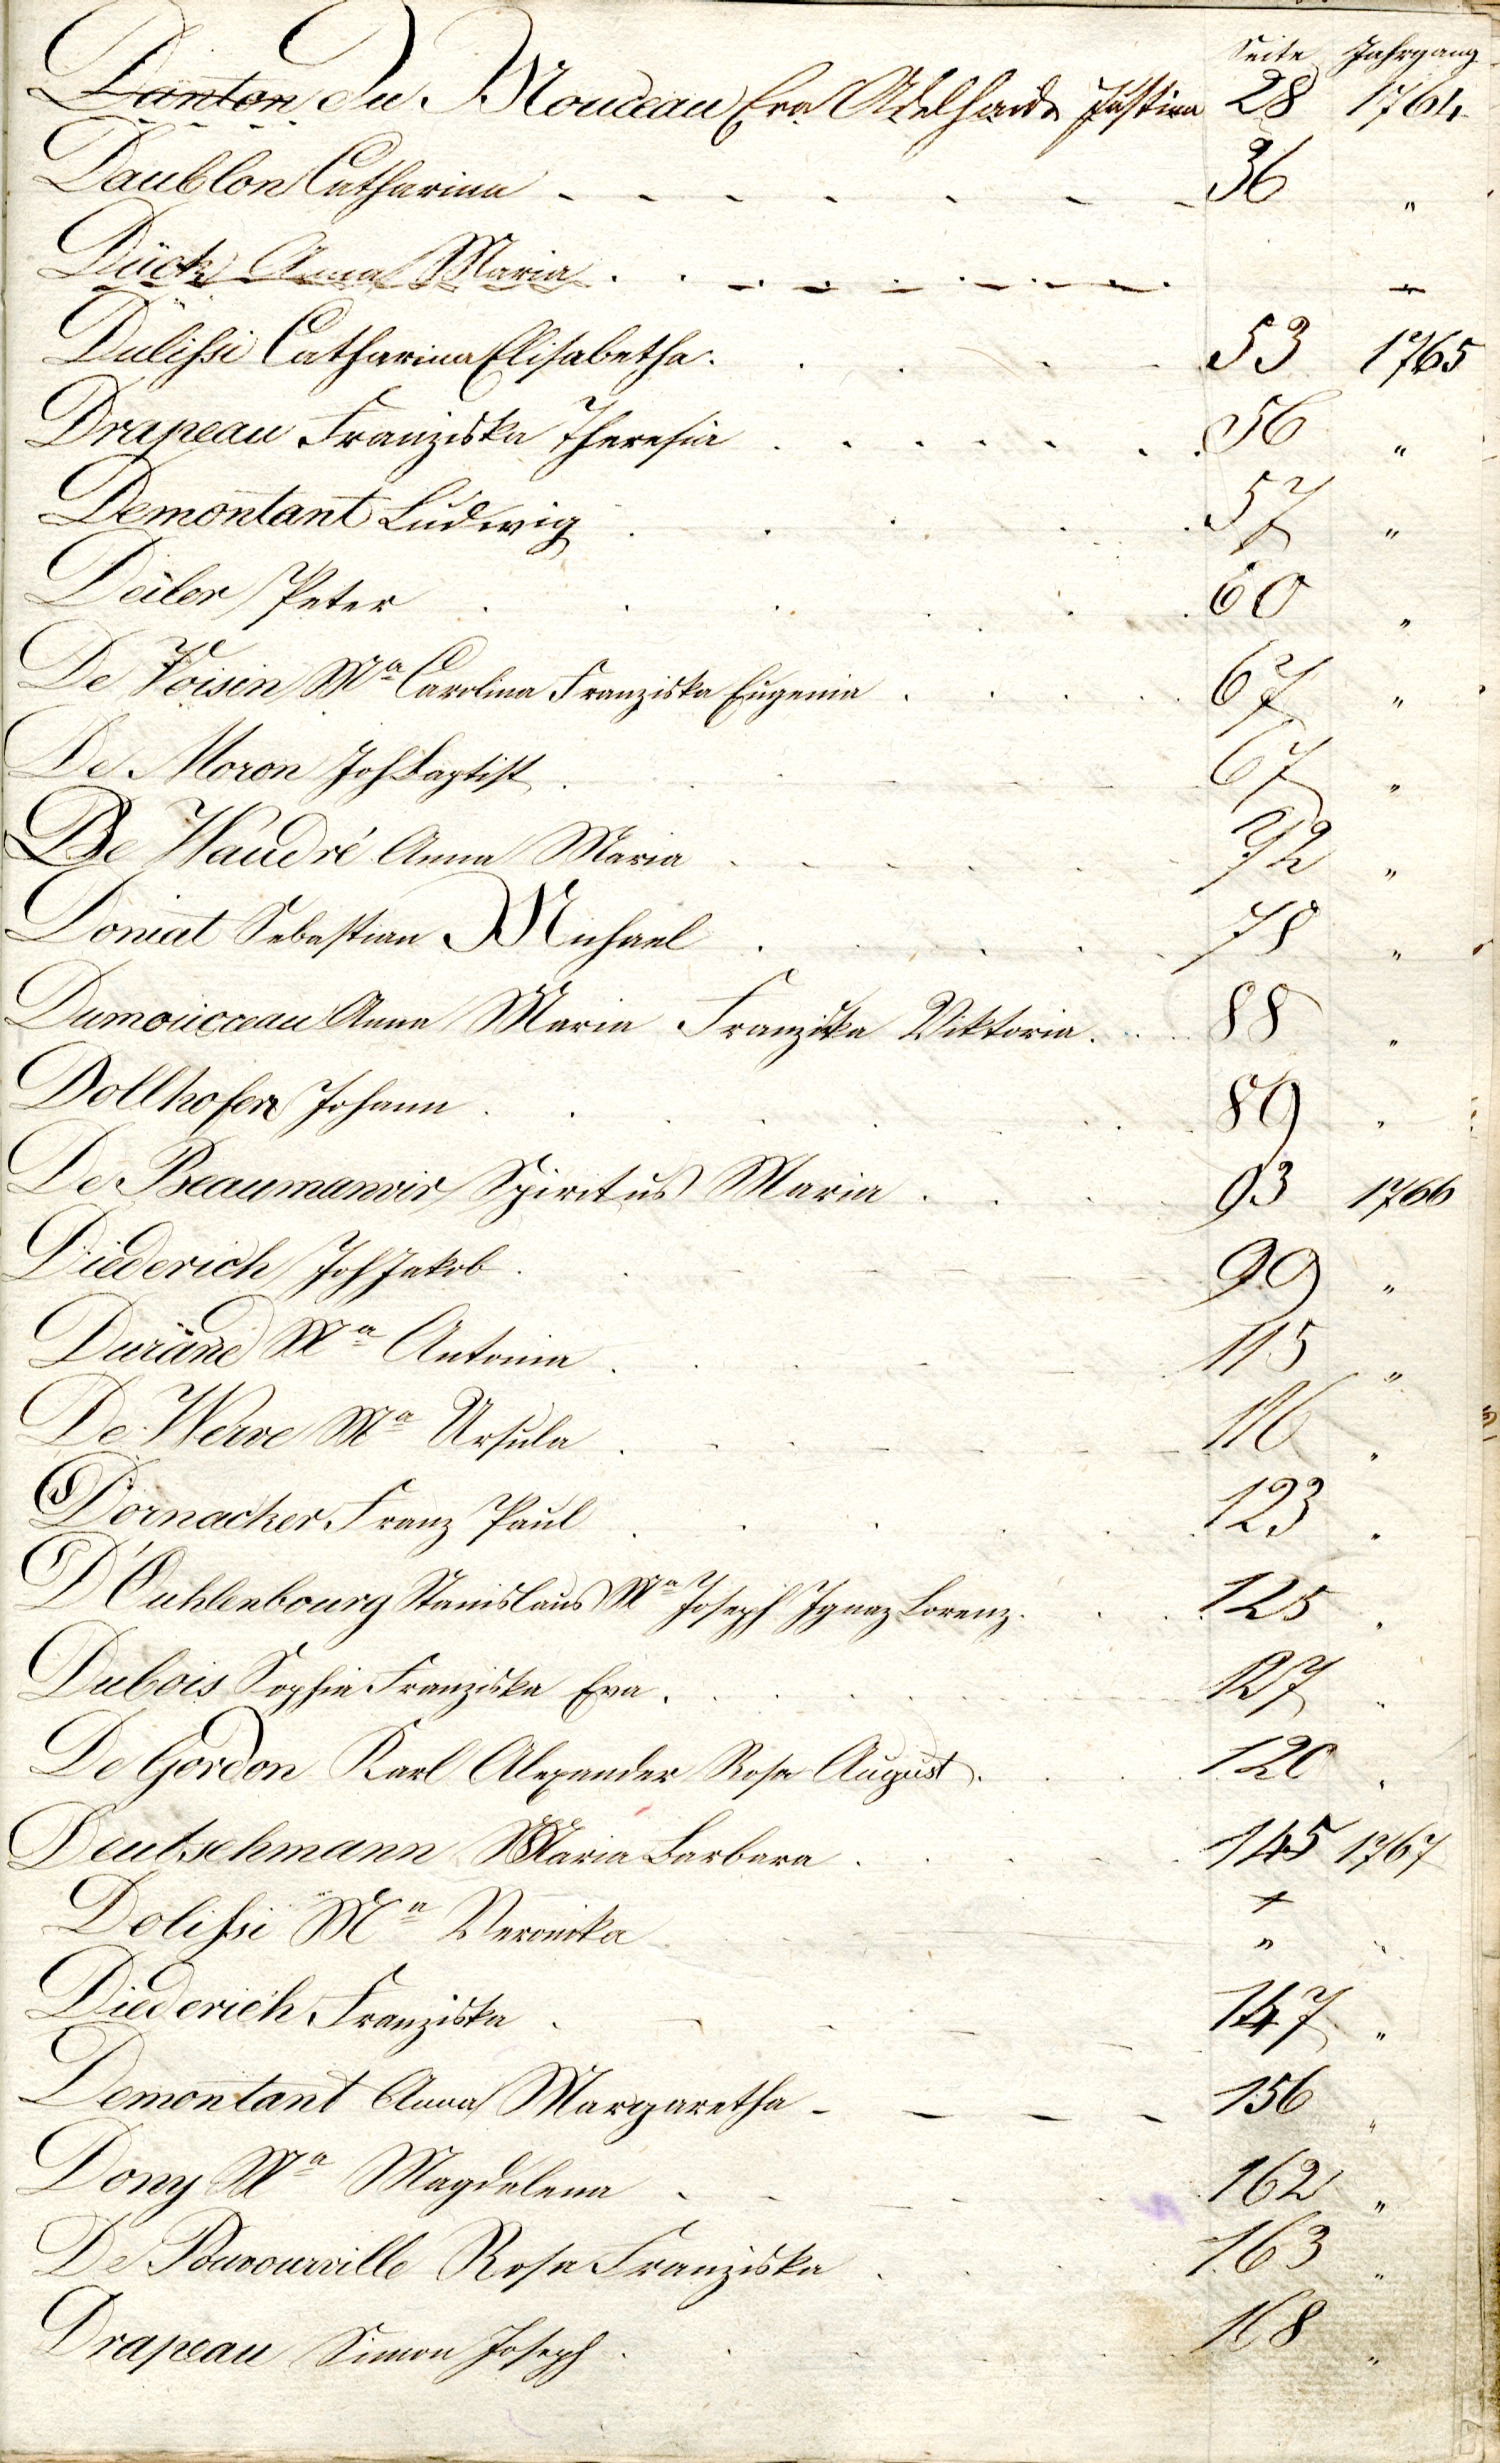 Seite Jahrgang
Danton du Mouceau Eva Adelhaide Justina 28 1764
Daublon Catharina - - - - - - - 36 "
Dück Anna Maria . . - - - - - - . "
Dulissi Catharina Elisabetha . . . . . 53 1765
Drapeau Franziska Theresia . . . . . . . 56 "
Demontant Ludwig . . . . . 57 "
Deiler Peter . . . . . . 60 "
De Voisin Ma Carolina Franziska Eugenia . . . . 67 "
De Moron Joh Baptist . . . . . 67 "
De Waudré Anna Maria . . . . . . 72 "
Doniat Sebastian Michael . . . . . 78 "
Dumouceau Anna Maria Franziska Viktoria . . . 88 "
Dollhofen Johann . . . . . . 89 "
De Beaumanoir Spiritus Maria . . . . 93 1766
Diederich Joh Jakob . . . . . . 99 "
Durand Ma Antonia . . . . . . 115 "
De Werve Ma Ursula . . . . . . 116 "
Dornacher Franz Paul . . . . . . 123 "
D'Ouhlenbourg Stanislaus Ma Joseph Ignaz Lorenz . . . 125 "
Dubois Sophia Franziska Eva . . . . . . 127 "
De Gordon Karl Alexander Rosa August . . . . 120 "
Deutschmann Maria Barbara . . . . . 145 1767
Dolissi Ma Veronika + " "
Diederich Franziska . - - - - - 147 "
Demontant Anna Margaretha - - - - 156 "
Dony Ma Magdalena . . . . . 162 "
De Pouvourville Rosa Franziska . . . . 163 "
Drapeau Simon Joseph . . . . . 168 "